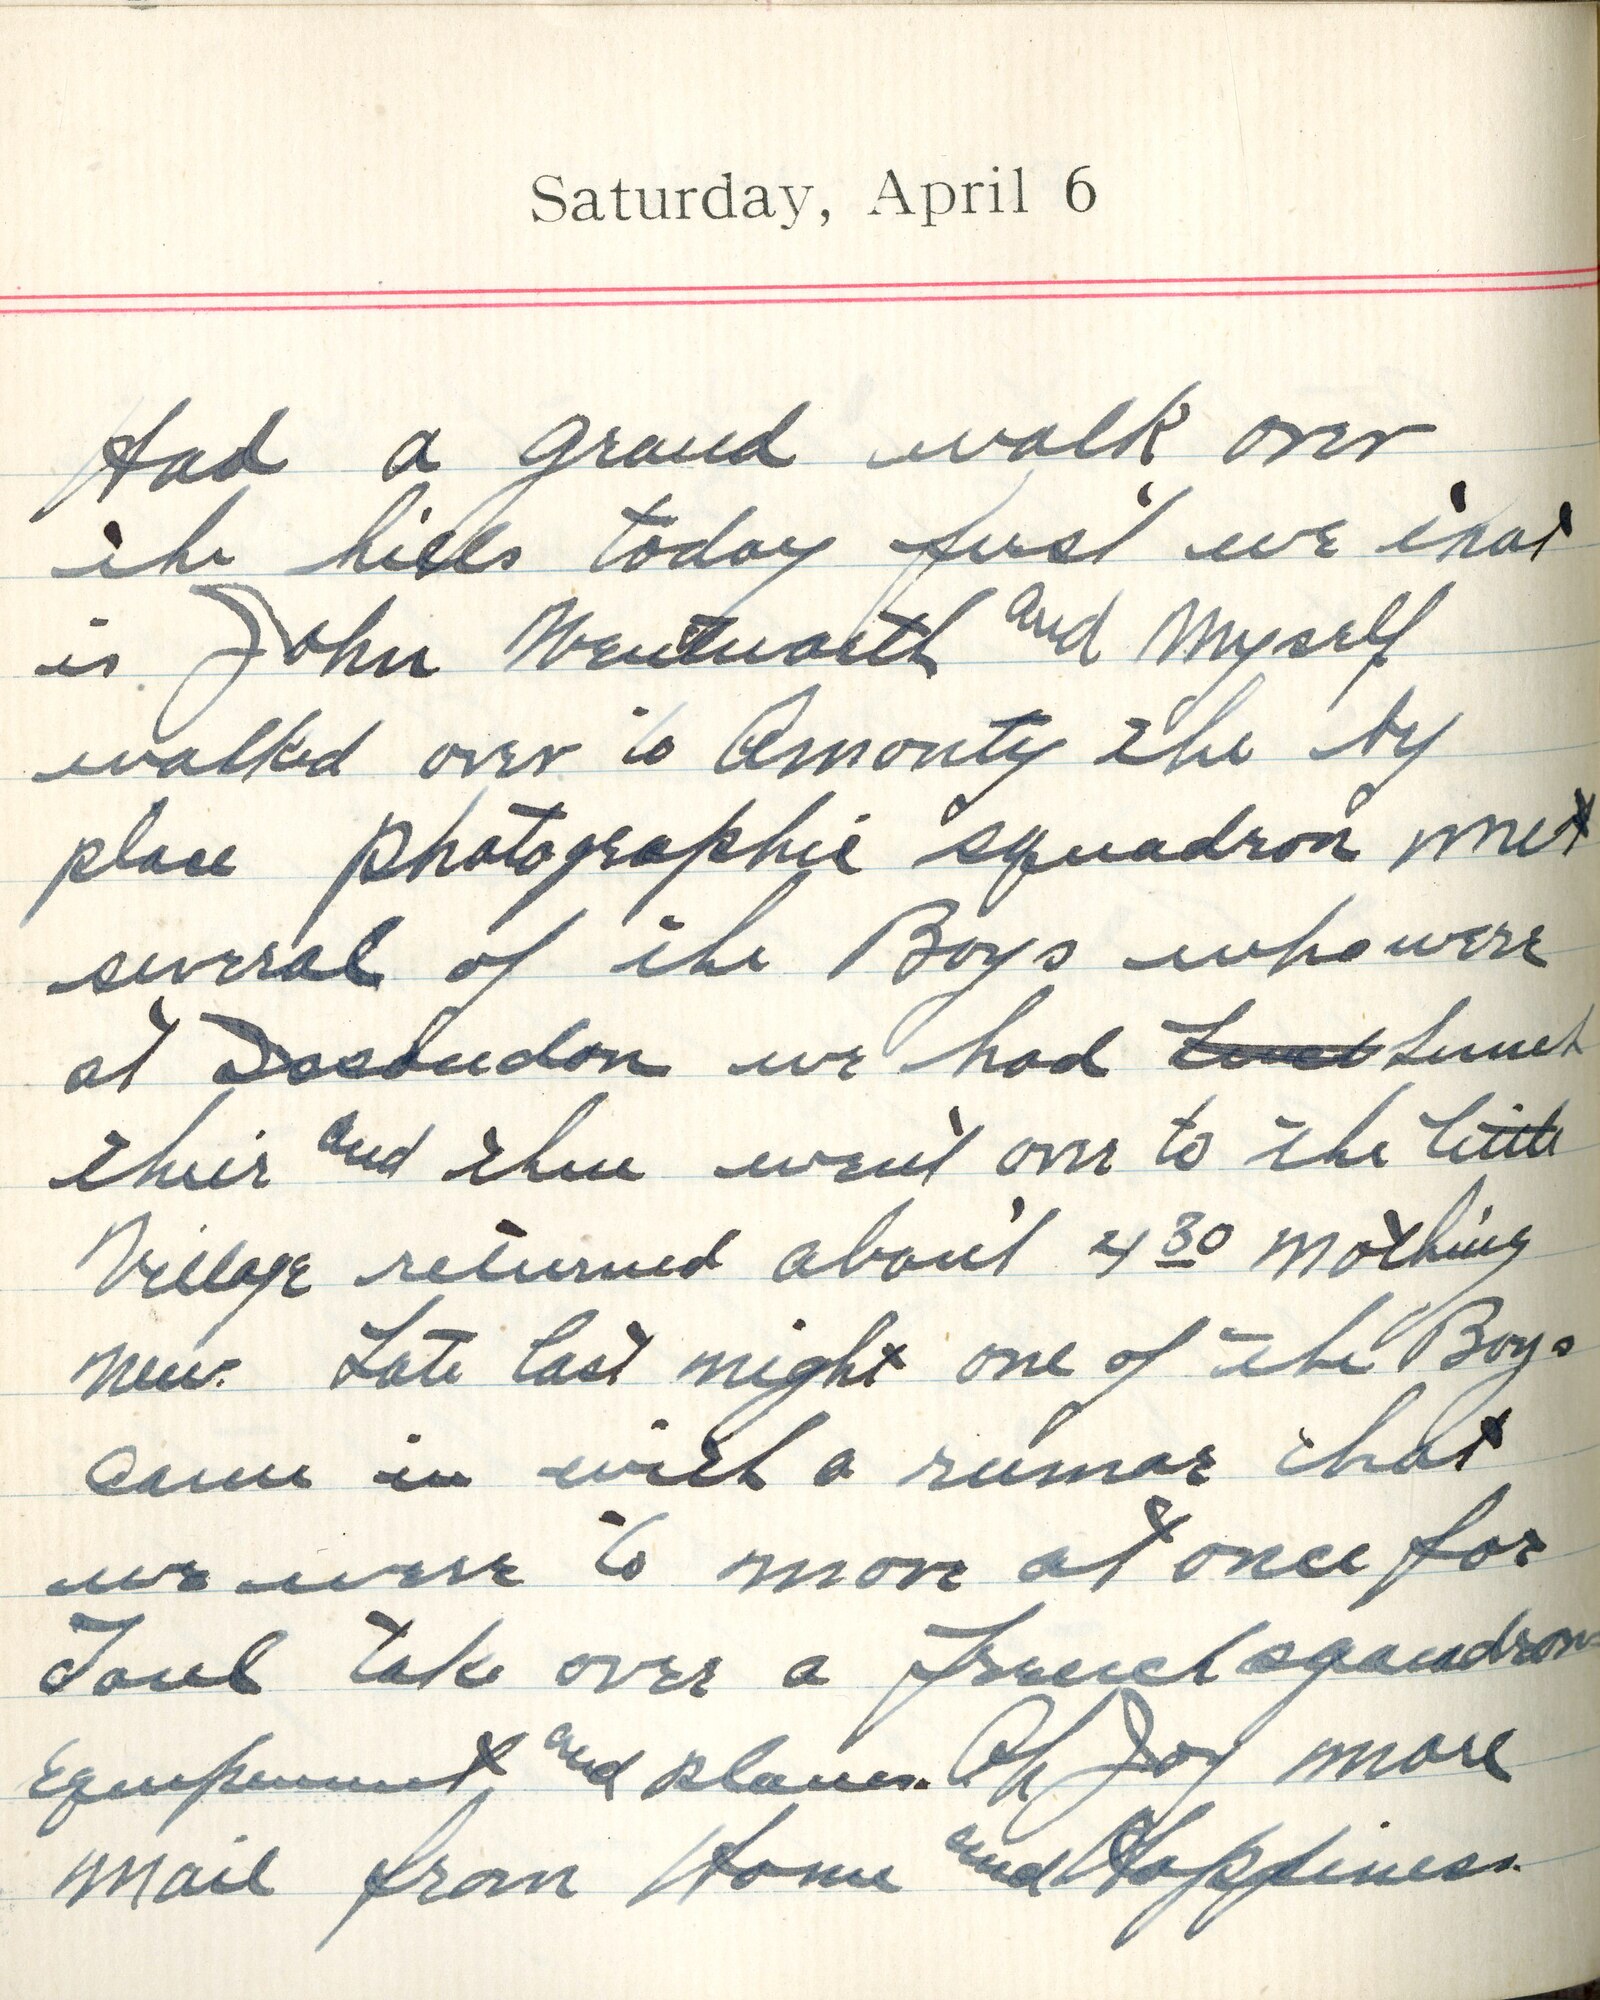 Saturday, April 6
Had a grand walk over
the hills today first we that
is John Wentworth and Myself
walked over to Amonty the by
place photographic squadron met
several of the Boys who were
at Issoudon we had Lunch
their and then went over to the little
Village returned about 4 30 nothing
new. Late last night one of the Boys
came in with a rumor that
we were to move at once for
Toul take over a French squadron
Equipment and planes. Oh Joy more
Mail from Home and Happiness.